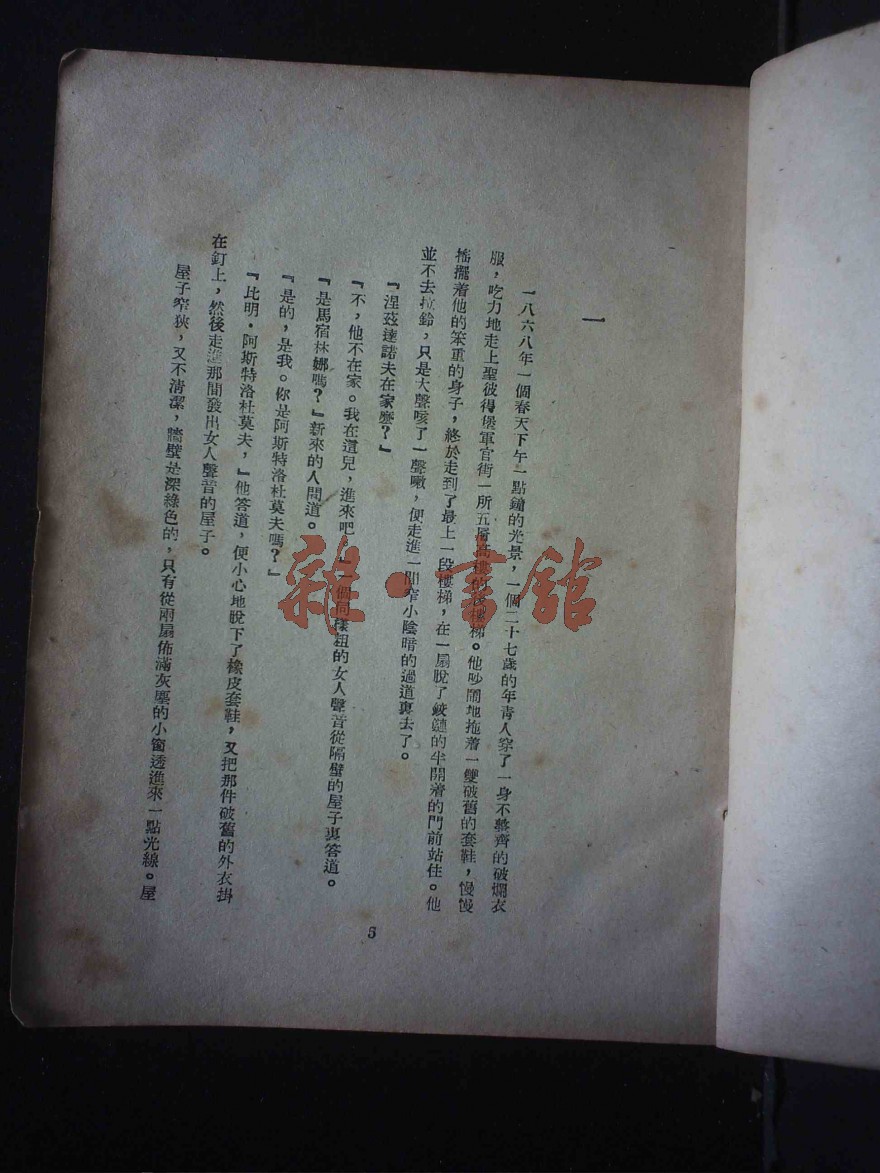 一
一八六八年一個春天下午一點鐘的光景，一個二十七歲的年青人穿了一身不整齊的破爛衣
服，吃力地走上聖彼得堡軍官街一所五層高樓的後樓梯。他吵鬧地拖着一雙破舊的套鞋，慢慢
搖擺着他的笨重的身子，終於走到了最上一段樓梯，在一扇脫了鉸鏈的半開着的門前站住。他
並不去拉鈴，只是大聲咳了一聲嗽，便走進一間窄小陰暗的過道裏去了。
『涅茲達諾夫在家麼？』
『不，他不在家。我在這兒，進來吧，』一個同樣粗的女人聲音從隔壁的屋子裏答道。
『是馬宿林娜嗎？』新來的人問道。
『是的，是我。你是阿斯特洛杜莫夫嗎？』
『比明·阿斯特洛杜莫夫，』他答道，便小心地脫下了橡皮套鞋，又把那件破舊的外衣掛
在釘上，然後走進那間發出女人聲音的屋子。
屋子窄狹，又不清潔，牆壁是深綠色的，只有從兩扇佈滿灰塵的小窗透進來一點光線。屋
5
雜·書館